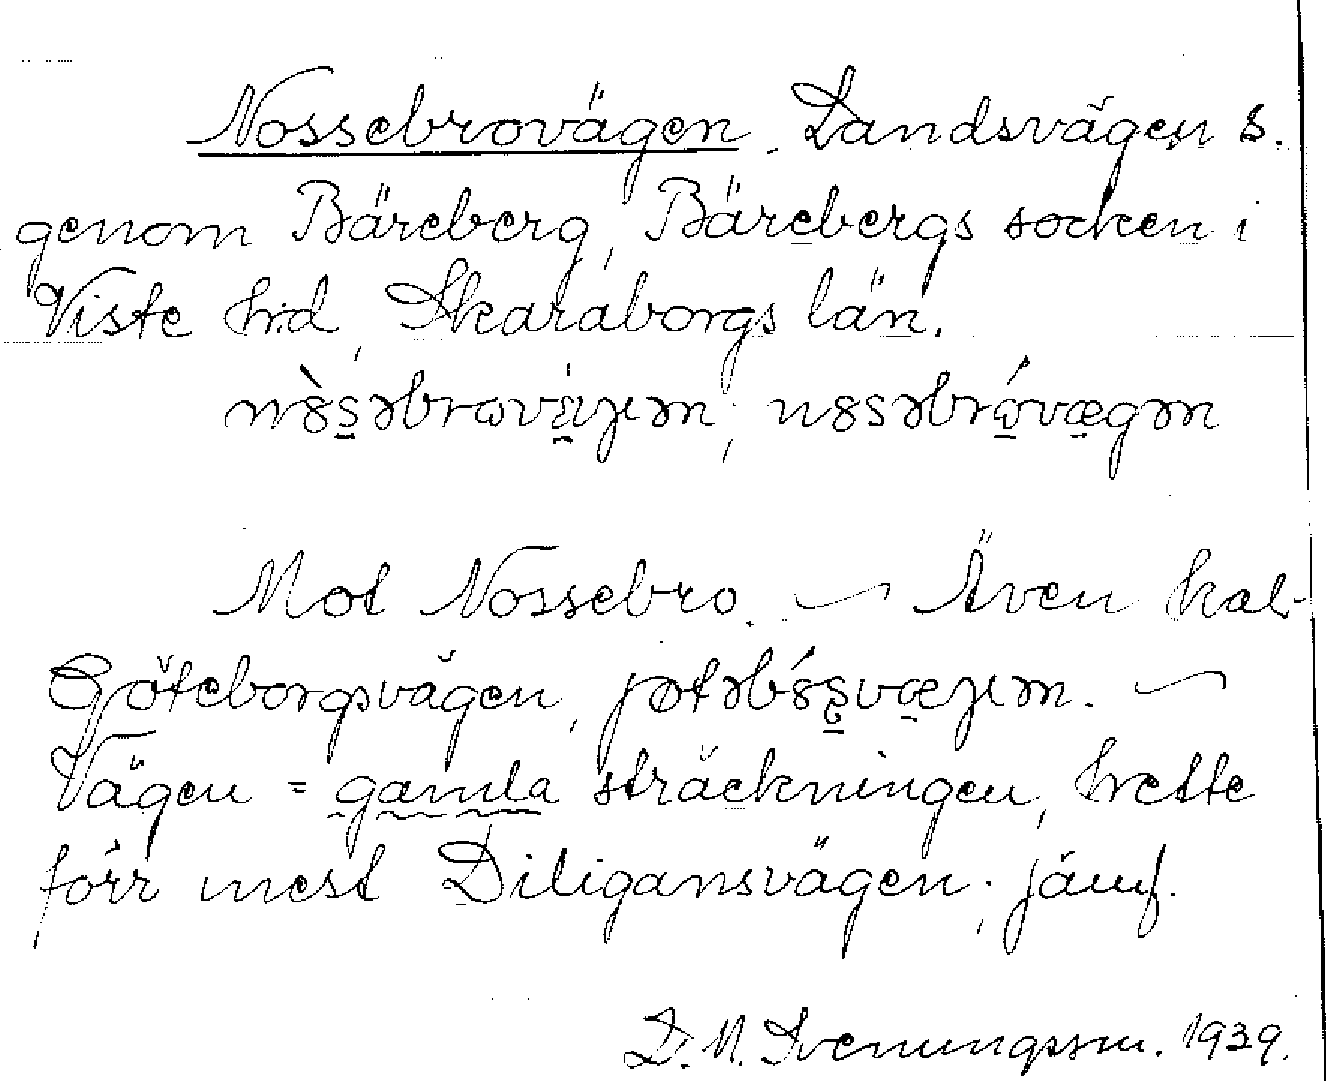 Nossebrovägen. Landsvägen s.
genom Bäreberg, Bärebergs socken i
Viste hrd, Skaraborgs län.
Mot Nossebro. — Även kal-
Göteborgsvägen,
Vägen = gamla sträckningen, hette
förr mest Diligansvägen; jämf.
D. N. Svenungsson. 1939.